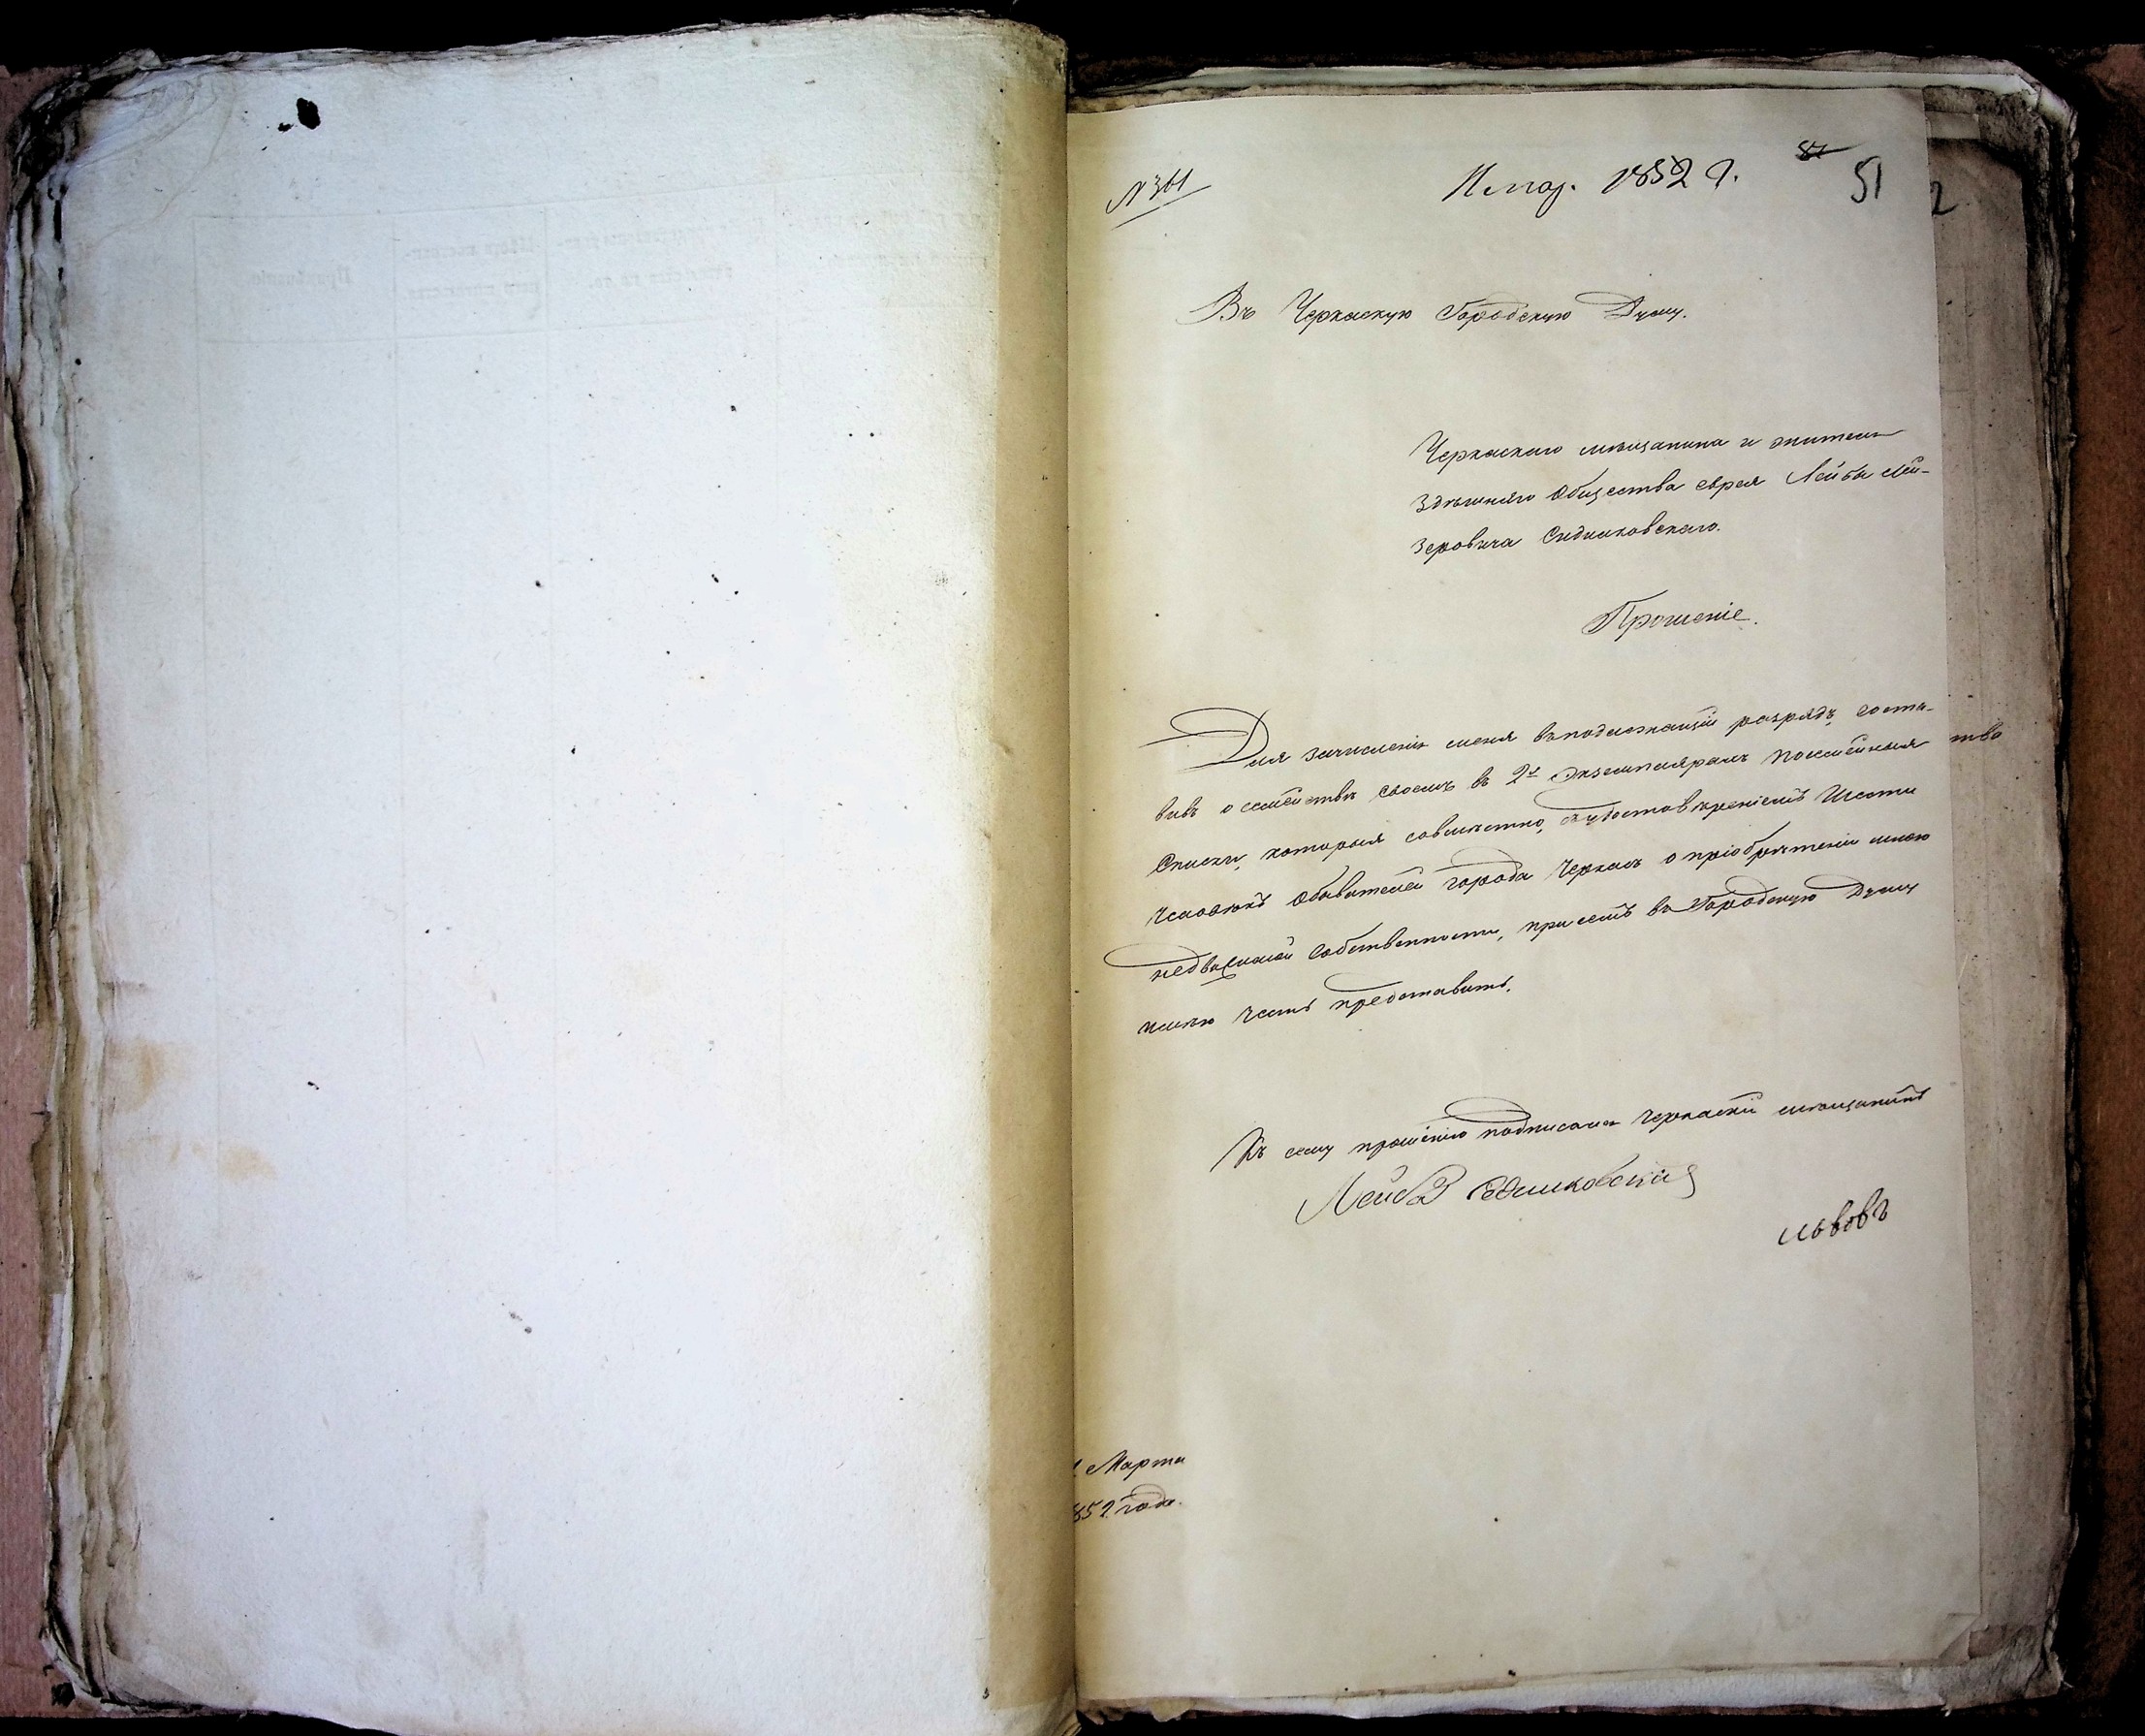 № 361
11 мар. 1852 г.
51
Въ Черкаскую Городскую Думу.
Черкаскаго мѣщанина и жителя
Здѣшняго Общества еврея Лейбы Лей-
зеровича Сидлиховскаго.
Прошеніе.
Для зачисленія меня въ подлежащій разрядъ, соста-
вивъ о семействѣ своемъ въ 2х Экземплярахъ Посемейныя
Списки, которыя совмѣстно, съ удостовѣреніемъ Шести
Человѣкъ Обывателей города Черкасъ о пріобрѣтеніи мною
недвижимой Собственности, при семъ въ Городскую Думу
имѣю Честь представить.
Къ сему прошенію подписался Черкаскій мѣщанинъ
Лейба
Львовъ
Марта
852 года.